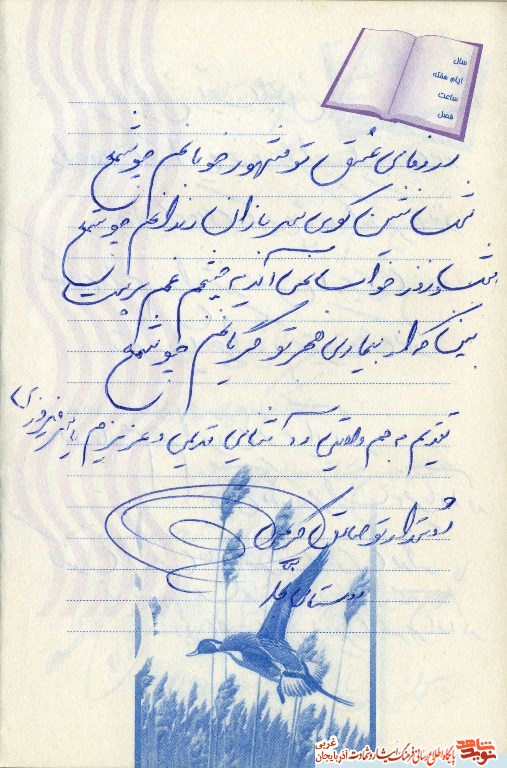 سال
ایام هفته
ساعت
فصل
در وفای عشق تو مشهور خوبانم چو شمع
شب نشین کوی سربازان و رندانم چو شمع
روز و شب خوابم نمی‌آید به چشم غم پرست
بسکه در بیماری هجر تو گریانم چو شمع
تقدیم به هم و آشنای قدیمی و عزیزم
دوستدار تو صادق
نوید شاهد
پایگاه اطلاع رسانی فرهنگ ایثار و شهادت آذربایجان غربی